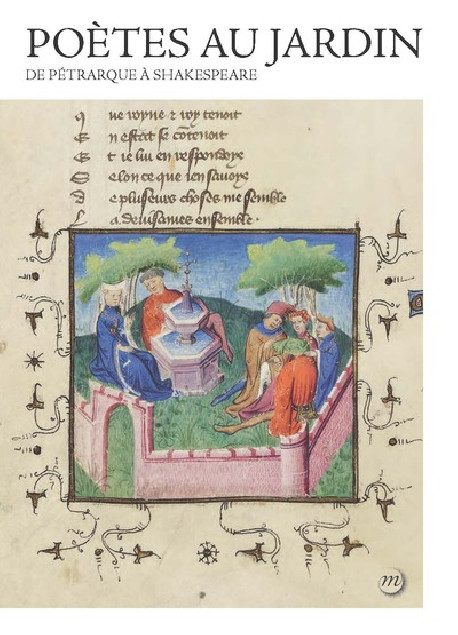 POÈTES AU JARDIN
DE PÉTRARQUE À SHAKESPEARE
q ue royne & roy tenoit
E n estat se cōtenoit
E t ie lui en respondoye
S elon ce que ien sauoye
D e plusieurs choses me semble
L a deuisames ensemble.
m